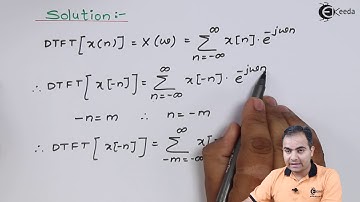 Solution:-
Ekeeda
DTFT[x(n)] = X(ω) = ∑_{n=-∞}^{∞} x[n]·e^{-jωn}
∴ DTFT[x[-n]] = ∑_{n=-∞}^{∞} x[-n]·e^{-jωn}
-n=m ∴ n=-m
∴ DTFT[x[-n]] = ∑_{-m=-∞}^{∞} x[